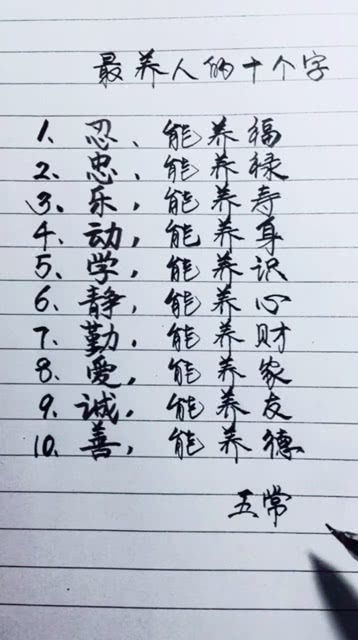 最养人的十个字
1、忍、能养福
2、忠、能养禄
3、乐，能养寿
4、动，能养身
5、学，能养识
6、静，能养心
7、勤，能养财
8、爱，能养家
9、诚，能养友
10、善，能养德
五常